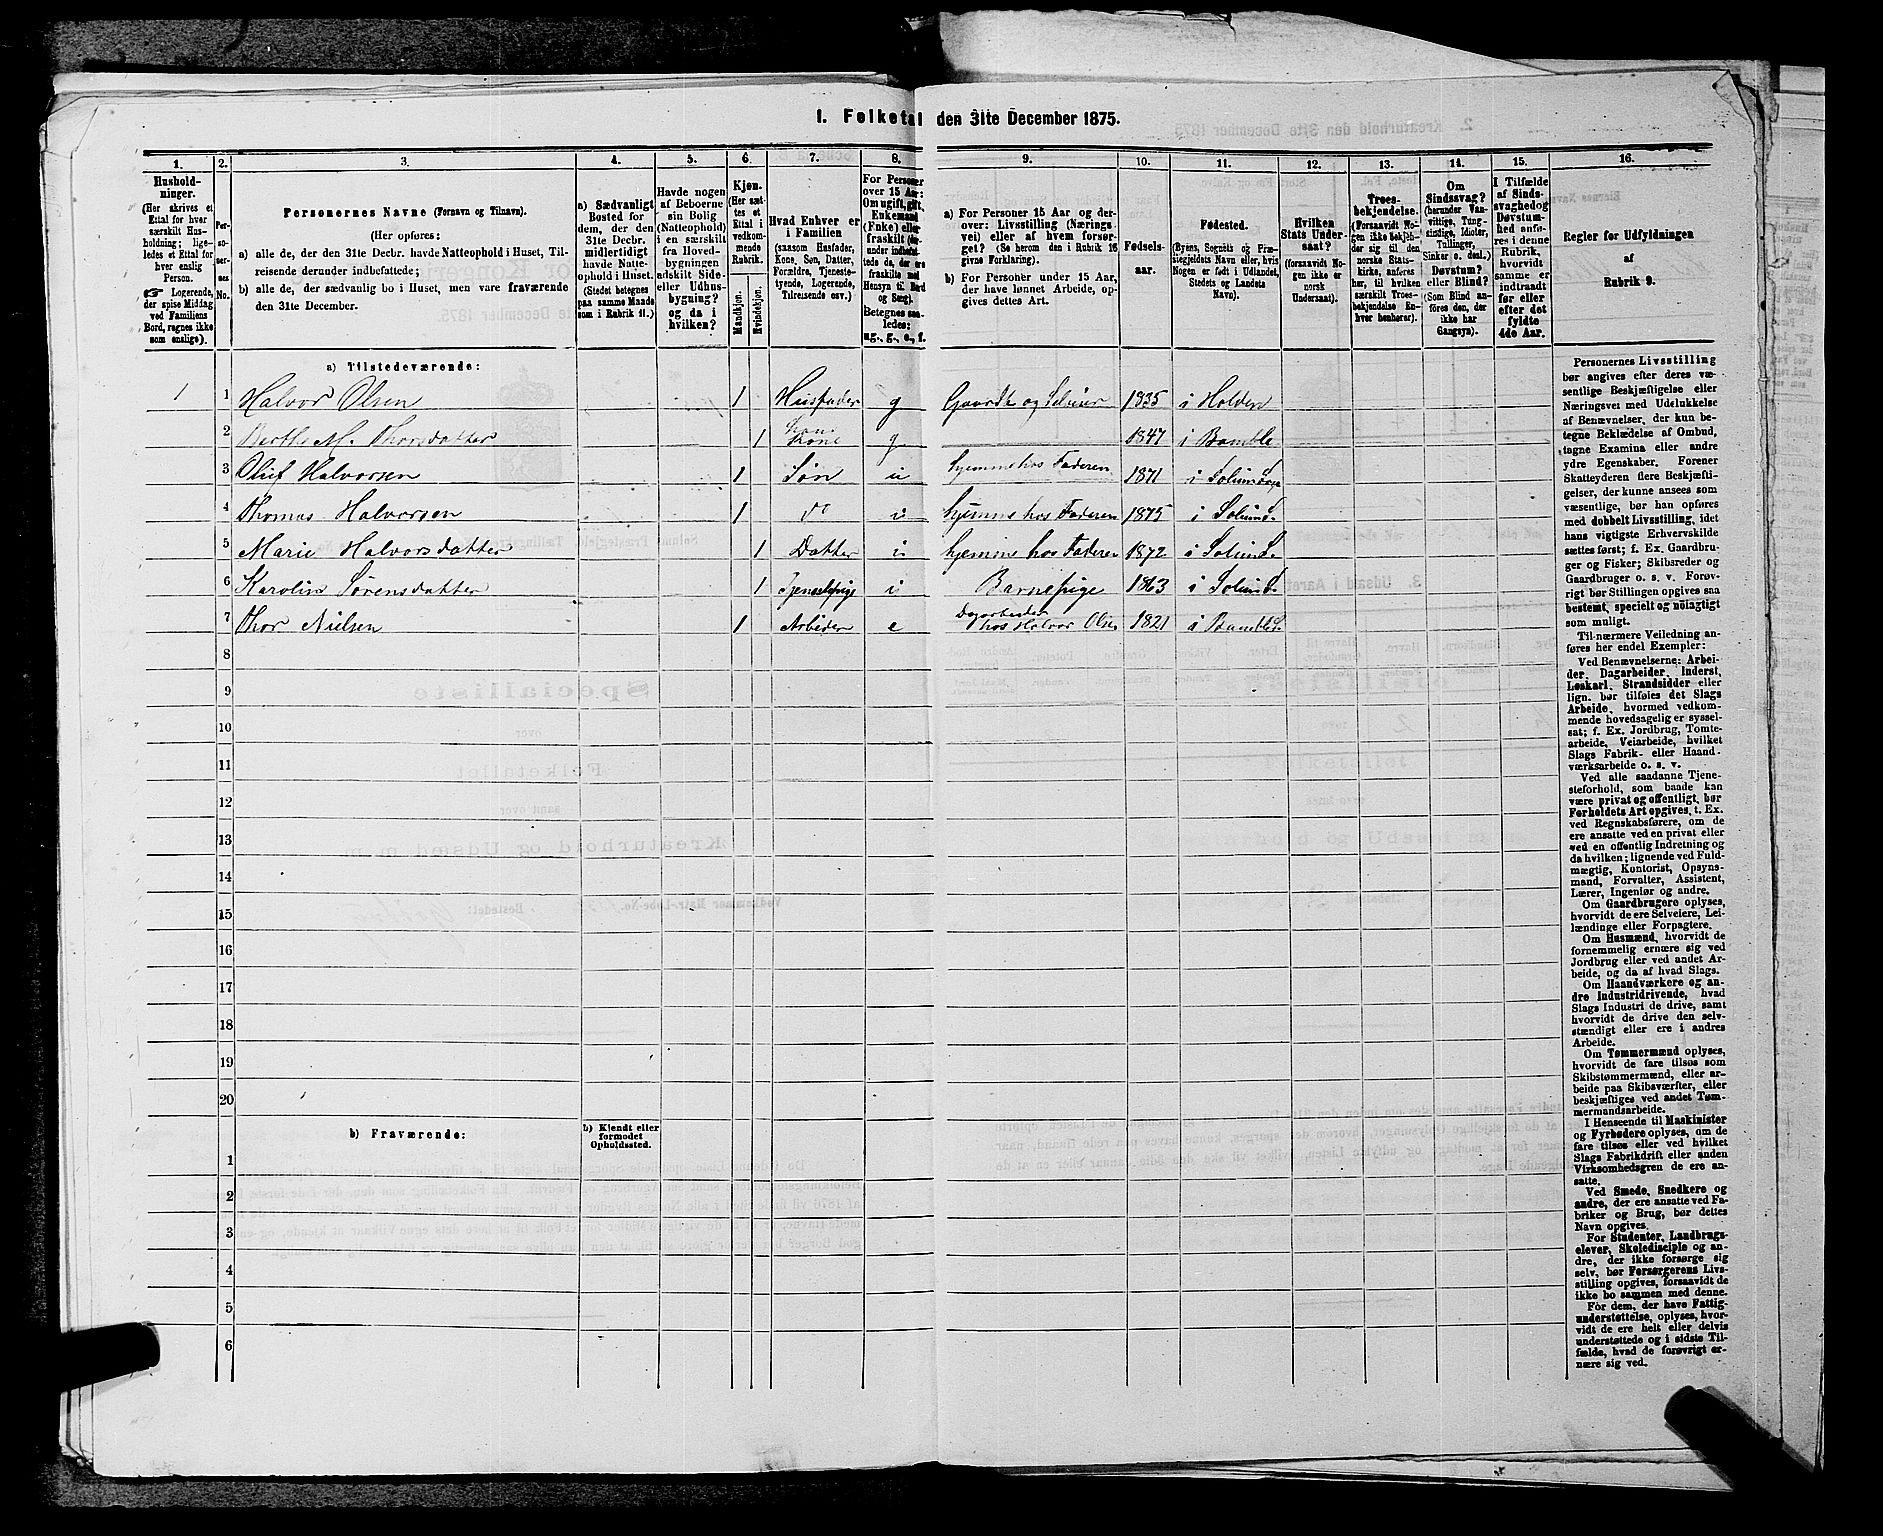 I. Folketal den 31te December 1875.
1. 2. 3. 4. 5. 6. 7. 8. 9. 10. 11. 12. 13. 14. 15. 16.
Husholdninger.
(Her skrives et
Ettal for hver
særskilt Husholdning;
ligeledes et Ettal for
hver enslig
Person.
☞ Logerende,
der spise Middag
ved Familiens
Bord, regnes ikke
som enslige).
Personernes No.
Personernes Navne (Fornavn og Tilnavn).
(Her opføres:
a) alle de, der den 31te Decbr. havde Natteophold i Huset, Tilreisende derunder indbefattede;
b) alle de, der sædvanlig bo i Huset, men vare fraværende
den 31te December.
a) Sædvanligt
Bosted for
dem, der den
31te Decbr.
midlertidigt
havde Natteophold i Huset.
(Stedet betegnes
paa samme Maade
som i Rubrik 11.)
Havde nogen
af Beboerne
sin Bolig
(Natteophold)
i en særskilt
fra Hovedbygningen
adskilt Side-
eller Udhusbygning?
og da i
hvilken?
Kjøn.
(Her sættes et
Ettal i
vedkommende
Rubrik.
Mandkjøn.
Kvindekjøn.
Hvad Enhver er
i Familien
(saasom Husfader,
Kone, Søn, Datter,
Forældre, Tjenestetyende, Logerende,
Tilreisende osv.)
For Personer
over 15 Aar:
Om ugift, gift,
Enkemand
(Enke) eller
fraskilt
Betegnes saaledes:
ug., g., e., f.
a) For Personer 15 Aar og derover: Livsstilling (Næringsvei) eller af hvem forsørget? (Se herom den i Rubrik 16
givne Forklaring).
b) For Personer under 15 Aar,
der have lønnet Arbeide, opgives dettes Art.
Fødselsaar.
Fødested.
(Byens, Sognets og Præstegjeldets Navn eller, hvis
Nogen er født i Udlandet,
Stedets og Landets
Navn).
Hvilken
Stats Undersaat?
(forsaavidt Nogen ikke er
norsk
Undersaat).
Troesbekjendelse.
(Forsaavidt Nogen ikke bekjender sig til den
norske Statskirke, anføres
her, til hvilken
særskilt Troesbekjendelse Enhver henhører).
Om
Sindssvag?
(herunder Vanvittige, Tungsindige, Idioter,
Tullinger,
Sinker o. desl.)
Døvstum?
eller Blind?
(Som Blind anføres den, der
ikke har
Gangsyn).
I Tilfælde
af Sindssvaghed og
Døvstumhed anføres i denne
Rubrik,
hvorvidt
samme er
indtraadt
før eller
efter det
fyldte
4de Aar.
Regler for Udfyldningen
af
Rubrik 9.
a) Tilstedeværende:
1 1 Halvor Olsen 1 Husfader g Gaardb og Selveier 1835 i Holden
2 Berthe M. Thorsdatter 1 Kone g 1847 i Bamble
3 Oluf Halvorsen 1 Søn u hjemme hos Faderen 1871 i
4 Thomas Halvorsen 1 do u hjemme hos Faderen 1875 i Solum S.
5 Marie Halvorsdatter 1 Datter u hjemme hos Faderen 1872 i Solum S.
6 Karolin Sørensdatter 1 Tjenestepige u Barnepige 1863 i Solum S.
7 Thor Nielsen 1 Arbeider e Dagarbeider hos Halvor Olsen 1821 i Bamble S.
8
9
10
11
12
13
14
15
16
17
18
19
20
b) Fraværende:
b) Kjendt eller
formodet
Opholdssted.
1
2
3
4
5
6
Personernes Livsstilling
bør angives efter deres væsentlige Beskjæftigelse eller
Næringsvei med Udelukkelse
af Benævnelser, der kun betegne Beklædelse af Ombud,
tagne Examina eller andre
ydre Egenskaber. Forener
Skatteyderen flere Beskjæftigelser, der kunne ansees som
væsentlige, bør han opføres
med dobbelt Livsstilling, idet
hans vigtigste Erhvervskilde
sættes først; f. Ex. Gaardbruger og Fisker; Skibsreder og
Gaardbruger o. s. v. Forøvrigt bør Stillingen opgives saa
bestemt, specielt og nøiagtigt
som muligt.
Til nærmere Veiledning anføres her endel Exempler:
Ved Benævnelserne: Arbeider, Dagarbeider, Inderst,
Løskarl, Strandsidder eller
lign. bør tilføies det Slags
Arbeide, hvormed vedkommende hovedsagelig er sysselsat; f. Ex. Jordbrug, Tomtearbeide, Veiarbeide, hvilket
Slags Fabrik- eller Haandværksarbeide o. s. v.
Ved alle saadanne Tjenesteforhold, som baade kan
være privat og offentligt, bør
Forholdets Art opgives, t. Ex.
ved Regnskabsførere, om de
ere ansatte ved en privat eller
ved en offentlig Indretning og
da hvilken; lignende ved Fuldmægtig, Kontorist, Opsynsmand, Forvalter, Assistent,
Lærer, Ingeniør og andre.
Om Gaardbrugere oplyses,
hvorvidt de ere Selveiere, Leilændinge eller Forpagtere.
Om Husmænd, hvorvidt de
fornemmelig ernære sig ved
Jordbrug eller ved andet Arbeide, og da af hvad Slags.
Om Haandværkere og andre Industridrivende, hvad
Slags Industri de drive, samt
hvorvidt de drive den selvstændigt eller ere i andres
Arbeide.
Om Tømmermænd oplyses,
hvorvidt de fare tilsøs som
Skibstømmermænd, eller arbeide paa Skibsværfter, eller
beskjæftiges ved andet Tømmermandsarbeide.
I Henseende til Maskinister
og Fyrbødere oplyses, om de
fare tilsøs eller ved hvilket
Slags Fabrikdrift eller anden
Virksomhedsgren de ere ansatte.
Ved Smede, Snedkere og
andre, der ere ansatte ved Fabriker og Brug, bør dettes
Navn opgives.
For Studenter, Landbrugselever, Skoledisciple og andre, der ikke forsørge sig
selv, bør Forsørgerens Livsstilling opgives, forsaavidt de
ikke bo sammen med denne.
For dem, der have Fattigunderstøttelse, oplyses, hvorvidt de ere helt eller delvis
understøttede og i sidste Tilfælde, hvad de forøvrigt ernære sig ved.